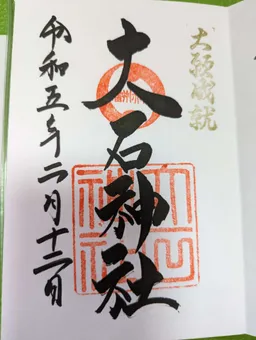 大願成就
大石神社
令和五年二月十二日